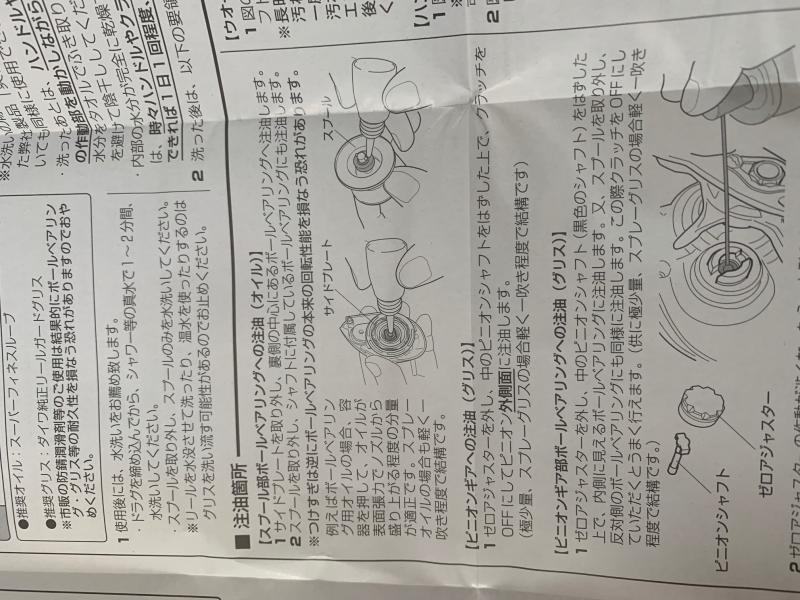 ●推奨オイル：スーパーフィネスルーブ
●推奨グリス：ダイワ純正リールガードグリス
※市販の防錆潤滑剤等のご使用は結果的にボールベアリン
グ・グリス等の耐久性を損なう恐れがありますのでおや
めください。
1 使用後には、水洗いをお薦め致します。
・ドラグを締め込んでから、シャワー等の真水で1〜2分間、
水洗いしてください。
・スプールを取り外し、スプールのみを水洗いしてください。
※リールを水没させて洗ったり、温水を使ったりするのは
グリスを洗い流す可能性があるのでお止めください。
た弊社製品に使用でき
いても同様に、ハンドルや
・洗ったあとは、
の作動部を動かしながら
水分をタオルでふき取り
を避けて陰干ししてくだ
・内部の水分が完全に乾燥
は、時々ハンドルやクラ
できれば1日1回程度、
2 洗った後は、以下の要領
■ 注油箇所
【スプール部ボールベアリングへの注油（オイル）】
1 サイドプレートを取り外し、裏側の中心にあるボールベアリングへ注油します。
2 スプールを取り外し、シャフトに付属しているボールベアリングにも注油します。
※つけすぎは逆にボールベアリングの本来の回転性能を損なう恐れがあります。
例えばボールベアリン
グ用オイルの場合、容
器を押して、オイルが
表面張力でノズルから
盛り上がる程度の分量
が適正です。スプレー
オイルの場合も軽く一
吹き程度で結構です。
サイドプレート
スプール
【ピニオンギアへの注油（グリス）】
1 ゼロアジャスターを外し、中のピニオンシャフトをはずした上で、クラッチを
OFFにしてピニオン外側面に注油します。
（極少量、スプレーグリスの場合軽く一吹き程度で結構です）
【ピニオンギア部ボールベアリングへの注油（グリス）】
1 ゼロアジャスターを外し、中のピニオンシャフト（黒色のシャフト）をはずした
上で、内側に見えるボールベアリングに注油します。又、スプールを取り外し、
反対側のボールベアリングにも同様に注油します。この際クラッチをOFFにし
ていただくとうまく行えます。（供に極少量、スプレーグリスの場合軽く一吹き
程度で結構です。）
ピニオンシャフト
ゼロアジャスター